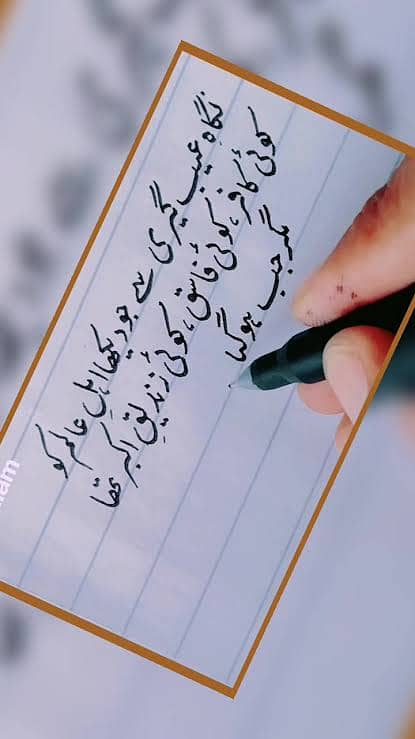 نگاہِ عیب گیری سے جو دیکھا اہلِ عالم کو
کوئی کافر، کوئی فاسق، کوئی زندیقِ اکبر تھا
مگر جب ہو گیا